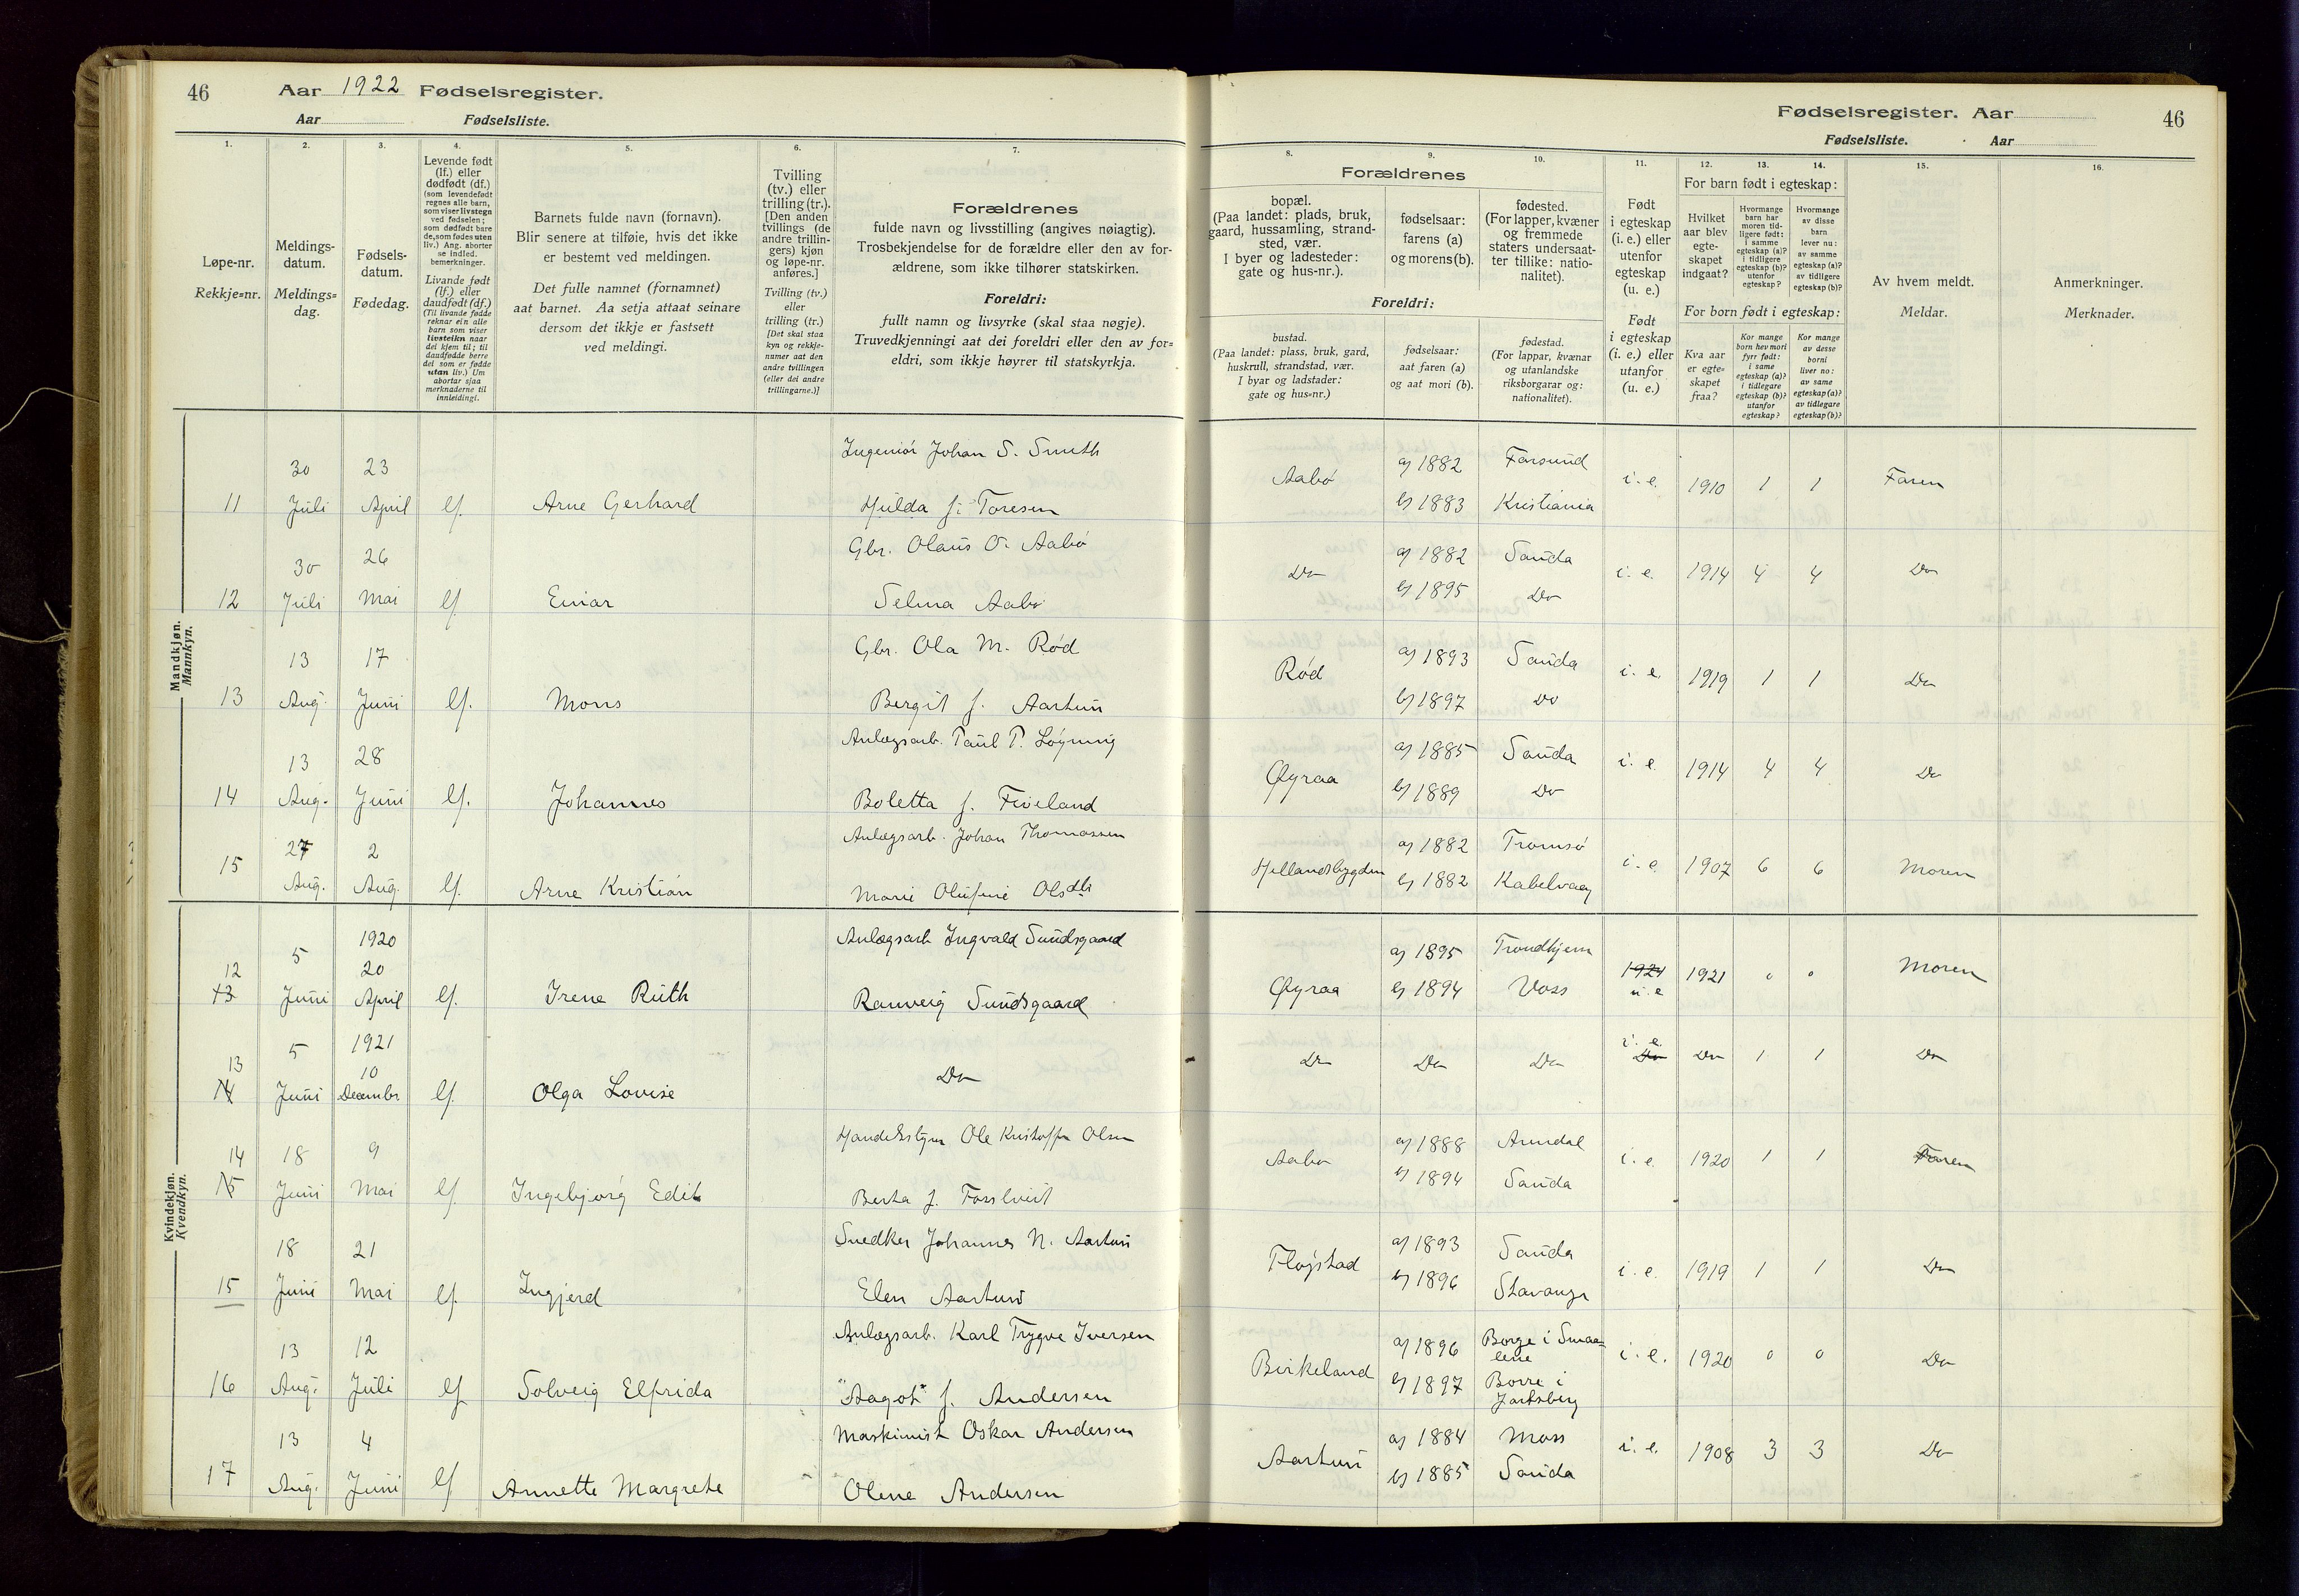 46 Aar 1922 Fødselsregister.
Aar Fødselsliste.
1. 2. 3. 4. 5. 6. 7.
Løpe-nr.
Rekkje=nr.
Meldings-
datum.
Meldings=
dag.
Fødsels-
datum.
Fødedag.
Levende født
(lf.) eller
dødfødt (df.)
(som levendefødt
regnes alle barn,
som viser livstegn
ved fødselen;
som dødfødt bare
de, som fødes uten
liv.) Ang. aborter
se indled.
bemerkninger.
Livande født
(lf.) eller
daudfødt (df.)
(Til livande fødde
reknar ein alle
barn som viser
livsteikn naar
dei kjem til; til
daudfødde berre
dei som er fødde
utan liv.) Um
abortar sjaa
merknaderne til
innleidingi.
Barnets fulde navn (fornavn).
Blir senere at tilføie, hvis det ikke
er bestemt ved meldingen.
Det fulle namnet (fornamnet)
aat barnet. Aa setja attaat seinare
dersom det ikkje er fastsett
ved meldingi.
Tvilling
(tv.) eller
trilling (tr.).
[Den anden
tvillings (de
andre trillin-
gers) kjøn
og løpe-nr.
anføres.]
Tvilling (tv.)
eller
trilling (tr.)
[Det skal staa
kyn og rekkje-
numer aat den
andre tvillingen
(eller dei andre
trillingarne.)]
Forældrenes
fulde navn og livsstilling (angives nøiagtig).
Trosbekjendelse for de forældre eller den av for-
ældrene, som ikke tilhører statskirken.
Foreldri:
fullt namn og livsyrke (skal staa nøgje).
Truvedkjenningi aat dei foreldri eller den av for=
eldri, som ikkje høyrer til statskyrkja.
Fødselsregister. Aar 46
Fødselsliste. Aar
8. 9. 10. 11. 12. 13. 14. 15. 16.
Forældrenes
bopæl.
(Paa landet: plads, bruk,
gaard, hussamling, strand-
sted, vær.
I byer og ladesteder:
gate og hus-nr.).
fødselsaar:
farens (a)
og morens (b).
fødested.
(For lapper, kvæner
og fremmede
staters undersaat-
ter tillike: natio-
nalitet).
Foreldri:
bustad.
(Paa landet: plass, bruk, gard,
huskrull, strandstad, vær.
I byar og ladstader:
gate og hus=nr.)
fødselsaar:
aat faren (a)
og aat mori (b).
fødestad.
(For lappar, kvænar
og utanlandske
riksborgarar og:
nationalitet).
Født
i egteskap
(i. e.) eller
utenfor
egteskap
(u. e.)
Født
i egteskap
(i. e.) eller
utanfor
(u. e.)
For barn født i egteskap:
Hvilket
aar blev
egte-
skapet
indgaat?
Hvormange
barn har
moren tid-
ligere født:
i samme
egteskap (a)?
i tidligere
egteskap (b)?
utenfor
egteskap?
Hvormange
av disse
barn
lever nu:
av samme
egteskap (a)?
av tidligere
egteskap (b)?
For born født i egteskap:
Kva aar
er egte=
skapet
fraa?
Kor mange
born hev mori
fyrr født:
i same
egteskap (a)?
i tidlegare
egteskap (b)?
utanfor
egteskap?
Kor mange
av desse
borni
liver no:
av same
egteskap (a)?
av tidlegare
egteskap (b)?
Av hvem meldt.
Meldar.
Anmerkninger.
Merknader.
Mandkjøn.
Mannkyn.
Ingeniør Johan S. Smith
30 23 Aabø a) 1882 Farsund i. e. 1910 1 1 Faren
11 Juli April lf. Arne Gerhard Hulda f. Toresen b) 1883 Kristiania
Gbr. Olaus O. Aabø
30 26 Do a) 1882 Sauda i. e. 1914 4 4 Do
12 Juli Mai lf Einar Selma Aabø b) 1895 Do
Gbr. Ola M. Rød
13 17 Rød a) 1893 Sauda i. e. 1919 1 1 Do
13 Aug. Juni lf. Mons Bergit f. Aartun b) 1897 Do
Anlægsarb. Paul P. Løyning
13 28 Øyraa a) 1885 Sauda i. e. 1914 4 4 Do
14 Aug. Juni lf. Johannes Boletta f. Fiveland b) 1889 Do
Anlægsarb. Johan Thomassen
15 27 2 Hellandsbygden a) 1882 Tromsø i. e. 1907 6 6 Moren
Aug. Aug. lf. Arne Kristian Marie Olufine Olsdtr b) 1882 Kabelvaag
Kvindekjøn.
Kvendkyn.
1920 Anlægsarb Ingvald Sundsgaard
12 5 20 Øyraa a) 1895 Trondhjem 1921 1921 0 0 Moren
13 Juni April lf. Irene Ruth Ranveig Sundsgaard b) 1894 Voss u. e
1921 i. e.
13 5 10 Do Do Do Do Do Do 1 1 Do
14 Juni Decembr lf. Olga Lovise
Handelsstyrer Ole Kristoffer Olsen
14 18 9 Aabø a) 1888 Arendal i. e. 1920 1 1 Faren
15 Juni Mai lf Ingebjørg Edit Berta f. b) 1894 Sauda
Snedker Johannes N. Aartun
18 21 Fløgstad a) 1893 Sauda i. e. 1919 1 1 Do
15 Juni Mai lf. Ingjerd Elen Aartun b) 1896 Stavanger
Anlægsarb. Karl Trygve Iversen
13 12 Birkeland a) 1896 Borge i Smaa=
lene i. e. 1920 0 0 Do
16 Aug. Juli lf Solveig Elfrida "Aagot" f. Andersen b) 1897 Borre i
Jarlsberg
Maskinist Oskar Andersen
13 4 Aartun a) 1884 Moss i. e. 1908 3 3 Do
17 Aug. Juni lf Annette Margrete Olene Andersen b) 1885 Sauda